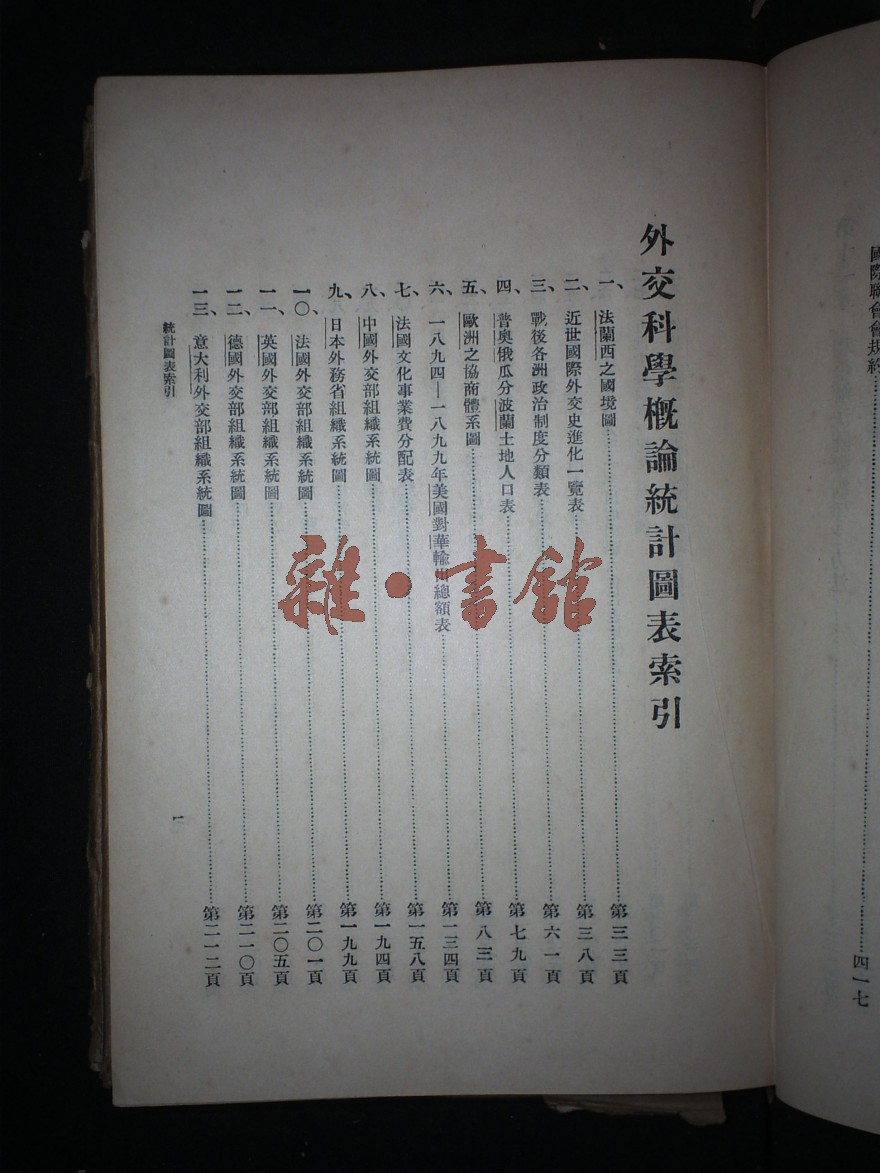 國際聯合會規約……四一七
外交科學概論統計圖表索引
一、法蘭西之國境圖……第三三頁
二、近世國際外交史進化一覽表……第三八頁
三、戰後各洲政治制度分類表……第六一頁
四、普奧俄瓜分波蘭土地人口表……第七九頁
五、歐洲之協商體系圖……第八三頁
六、一八九四—一八九九年美國對華輸出總額表……第一三四頁
七、法國文化事業費分配表……第一五八頁
八、中國外交部組織系統圖……第一九四頁
九、日本外務省組織系統圖……第一九九頁
一〇、法國外交部組織系統圖……第二〇一頁
一一、英國外交部組織系統圖……第二〇五頁
一二、德國外交部組織系統圖……第二一〇頁
一三、意大利外交部組織系統圖……第二一二頁
統計圖表索引
一
雜·書館